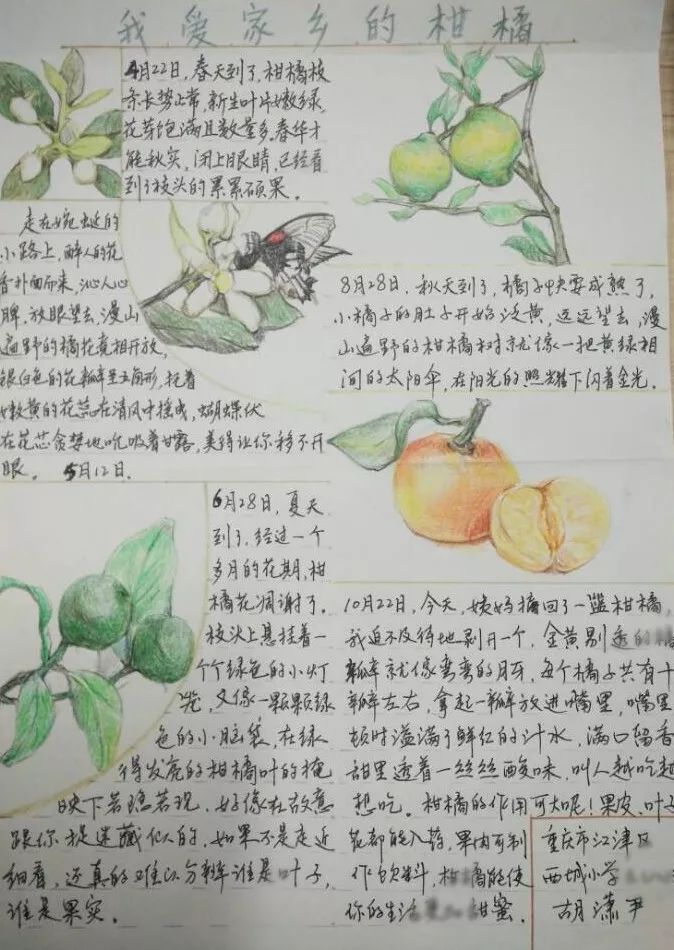 我爱家乡的柑橘
4月22日，春天到了，柑橘枝
条长势正常，新生叶片嫩绿，
花芽饱满且数量多，春华才
能秋实，闭上眼睛，已经看
到了枝头的累累硕果。
走在蜿蜒的
小路上，醉人的花
香扑面而来，沁人心
脾，放眼望去，漫山
遍野的橘花竞相开放，
银白色的花瓣呈五角形，托着
嫩黄的花蕊在清风中摇曳，蝴蝶伏
在花芯贪婪地吮吸着甘露，美得让你移不开
眼。 5月12日.
6月28日，夏天
到了，经过一个
多月的花期，柑
橘花凋谢了。
枝头上悬挂着一
个个绿色的小灯
笼，又像一颗颗绿
色的小脑袋，在绿
得发亮的柑橘叶的掩
映下若隐若现，好像在故意
跟你捉迷藏似的，如果不是走近
细看，还真的难以分辨谁是叶子，
谁是果实。
8月28日，秋天到了，橘子快要成熟了，
小橘子的肚子开始泛黄，远远望去，漫
山遍野的柑橘树就像一把黄绿相
间的太阳伞，在阳光的照耀下闪着金光。
10月22日，今天，姨妈摘回了一篮柑橘，
我迫不及待地剥开一个，金黄剔透的橘
瓣就像弯弯的月牙，每个橘子共有十
瓣左右，拿起一瓣放进嘴里，嘴里
顿时溢满了鲜红的汁水，满口留香
甜里透着一丝丝酸味，叫人越吃越
想吃。柑橘的作用可大呢！果皮、叶子
花都能入药，果肉可制
作饮料，柑橘能使
你的生活 甜蜜。
重庆市江津区
西城小学
胡潇尹